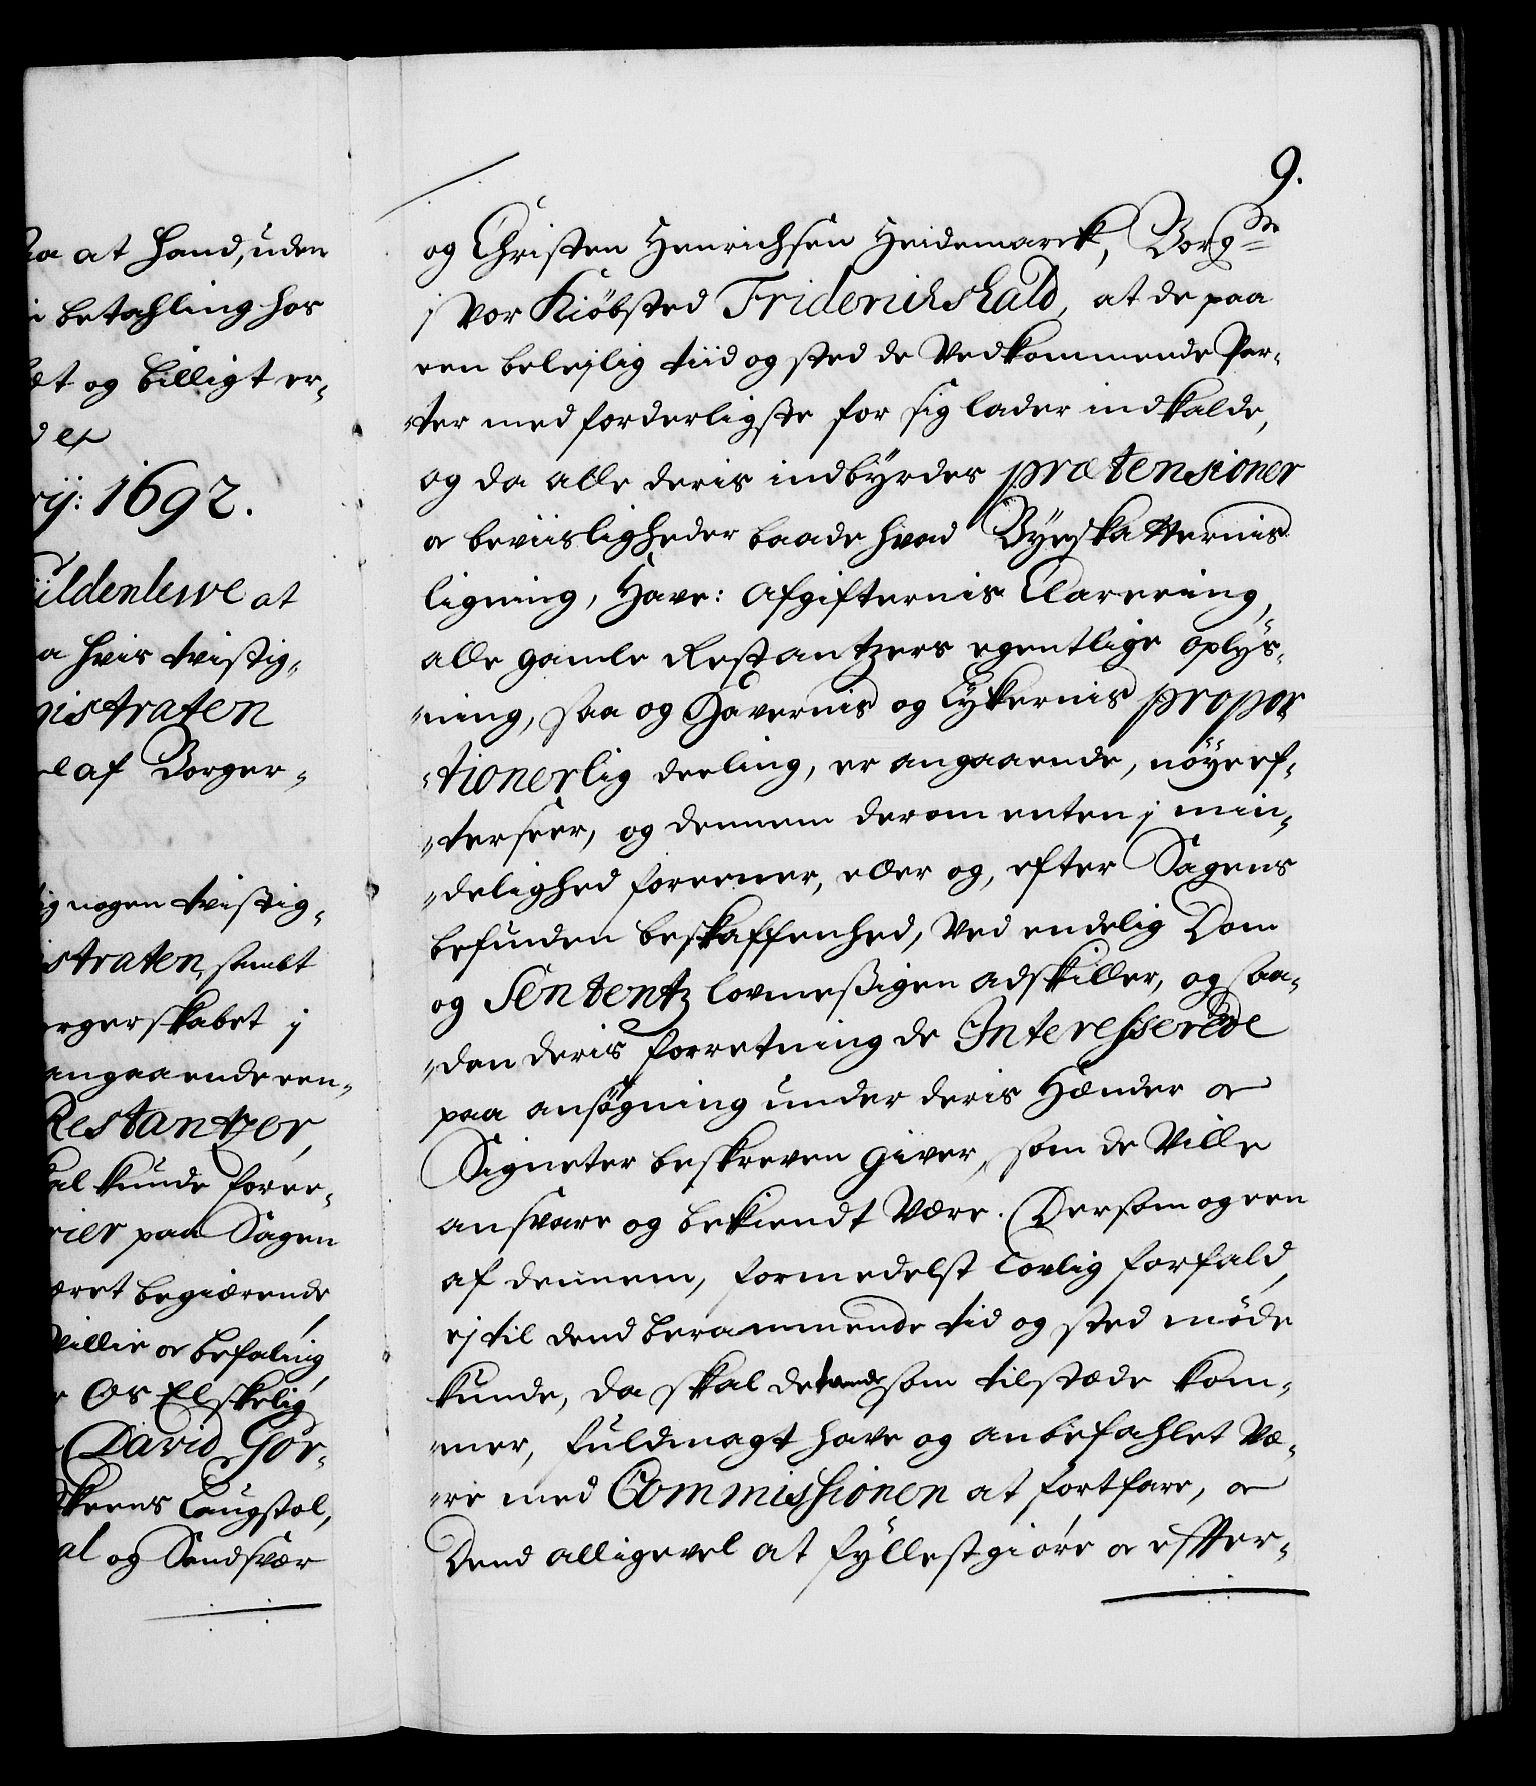 aa at haand, uden
i betahling hos
et og billigt er-
d ex
rij: 1692.
üldenlewe at
a hvis tvistig-
gistraten
el af Borger-
ig nogen tvistig-
straten, sambt
orgerskabet j
angaaende een-
Restantzer,
kal kunde foree-
rier paa Sagen
æret begiærende
Villie oc befaling
r Os Elskelig
David Gor-
skeens Laugstol,
al og Sandsvær
9.
og Christen Henrichsen Heidemarck, Borgre
j vor Kiøbsted Friderichshald, at de paa
een beleylig tiid og sted de Vedkommende Par-
ter med forderligste for sig lader indkalde,
og da alle deris indbyrdes prætensioner
oc beviisligheder baade hvad Byeskatternis
ligning, Have: Afgifternis Clareering,
alle gamle Restantzers egentlige oplys-
ning, saa og Havernis og Lykernis propor
tionerlig deeling, er angaaende, nøye ef-
terseer, og dennem derom enten j min-
delighed foreener, eller og, efter Sagens
befunden beskaffenhed, ved endelig Dom
og Sententz lovmeßigen adskiller, og saa-
dan deris forretning de Interesserede
paa ansøgning under deris Hænder oc
Signeter beskreven giver, som de Ville
ansvare og bekiendt Være. Dersom og een
af dennem, formedelst Lovlig forfald,
ej til dend berammende tid og sted møde
kunde, da skal de tvende som tilstæde kom-
mer, fuldmagt have og anbefahlet Væ-
re med Commissionen at fortfare, oc
Dend alligevel at fyllestgiøre oc effter-